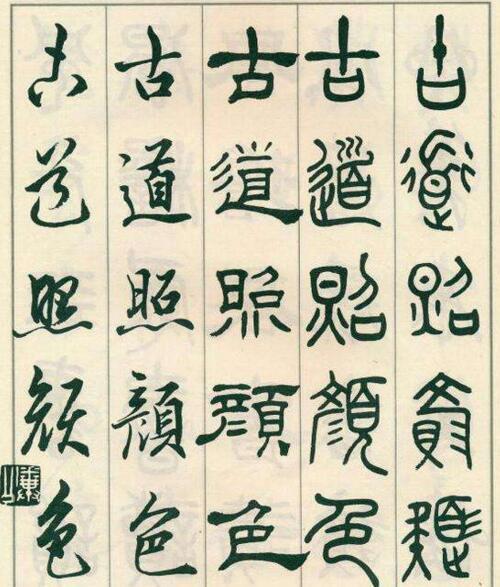 古道照顔色
古道照顔色
古道照顔色
古道照顔色
古道照顔色